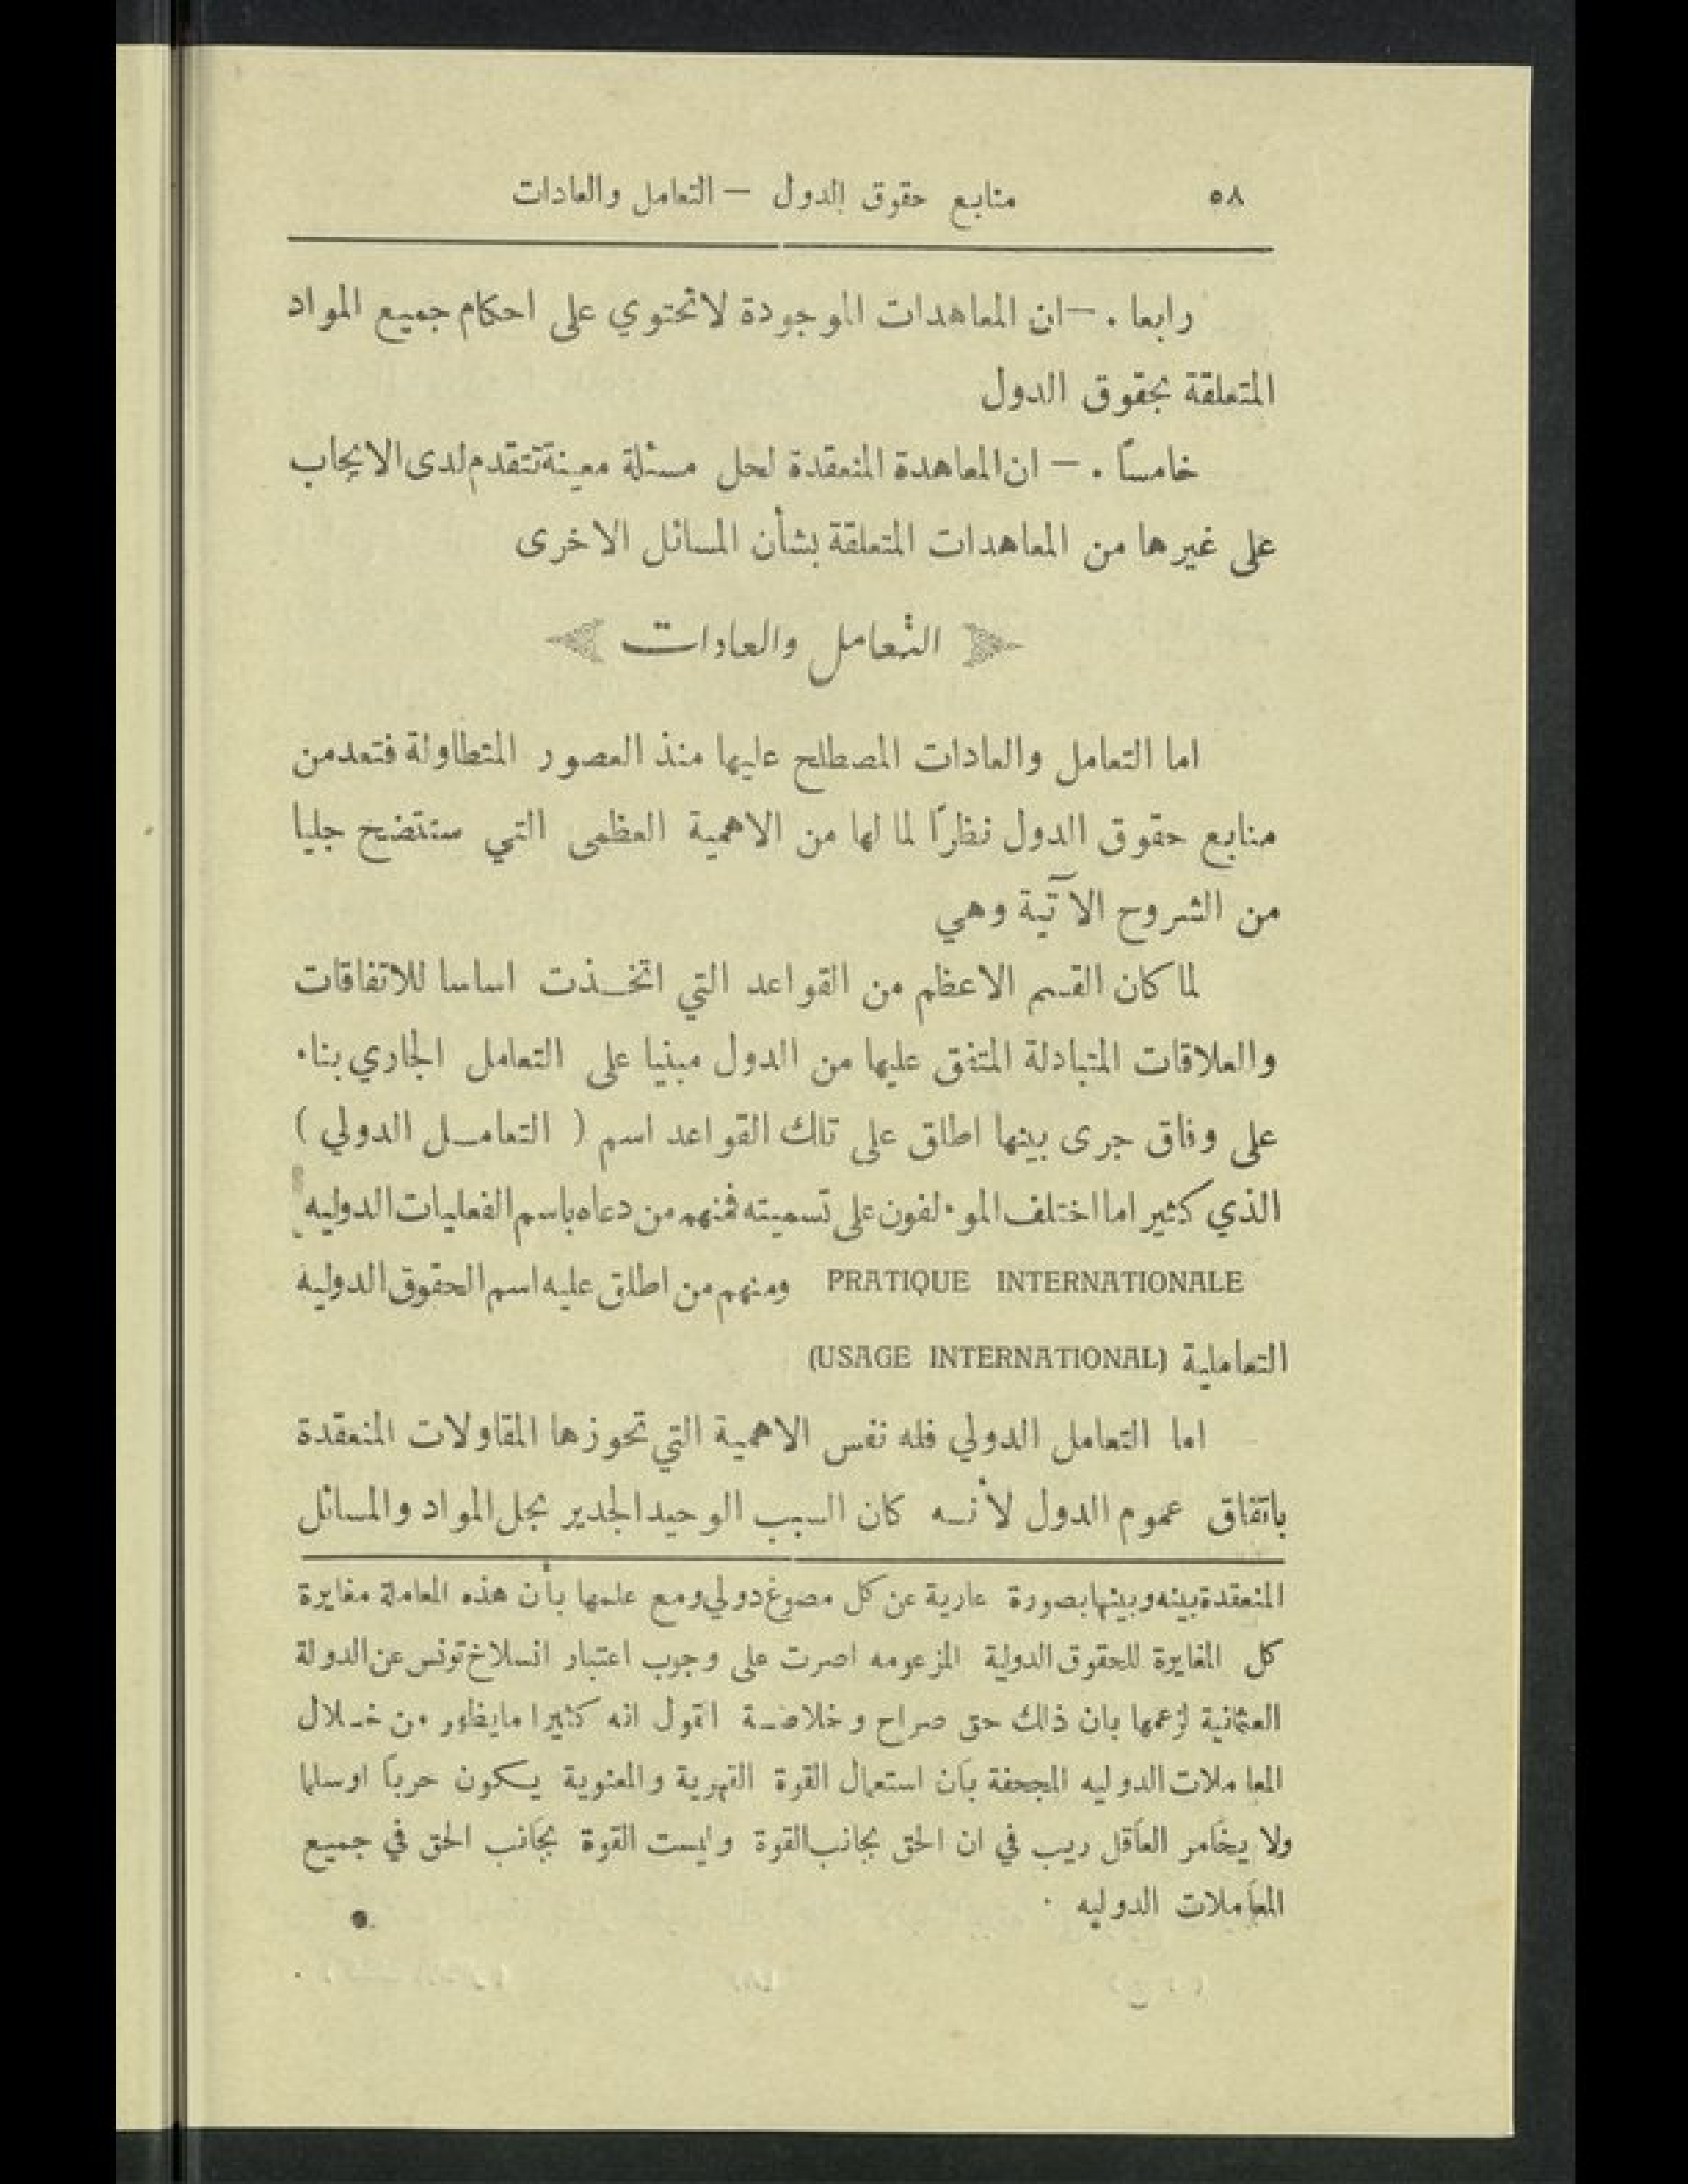 ٥٨ منابع حقوق الدول — التعامل والعادات
رابعا . — ان المعاهدات الموجودة لا تحتوي على احكام جميع المواد
المتعلقة بحقوق الدول
خامساً . — ان المعاهدة المنعقدة لحل مسئلة معينة تتقدم لدى الايجاب
على غيرها من المعاهدات المتعلقة بشأن المسائل الاخرى
التعامل والعادات
اما التعامل والعادات المصطلح عليها منذ العصور المتطاولة فتعد من
منابع حقوق الدول نظرًا لما لها من الاهمية العظمى التي ستتضح جليا
من الشروح الآتية وهي
لما كان القسم الاعظم من القواعد التي اتخـذت اساسا للاتفاقات
والعلاقات المتبادلة المتفق عليها من الدول مبنيا على التعامل الجاري بناء
على وفاق جرى بينها اطلق على تلك القواعد اسم ( التعامـل الدولي )
الذي كثير اما اختلف المؤلفون على تسميته فمنهم من دعاه باسم الفعليات الدوليه
PRATIQUE INTERNATIONALE ومنهم من اطلق عليه اسم الحقوق الدولية
التعاملية (USAGE INTERNATIONAL)
اما التعامل الدولي فله نفس الاهمية التي تحوزها المقاولات المنعقدة
باتفاق عموم الدول لأنـه كان السبب الوحيد الجدير بحل المواد والمسائل
المنعقدة بينه وبينها بصورة عارية عن كل مصوغ دولي ومع علمها بأن هذه المعاملة مغايرة
كل المغايرة للحقوق الدولية المزعومه اصرت على وجوب اعتبار انسلاخ تونس عن الدولة
العثمانية لزعمها بان ذلك حق صراح وخلاصـة القول انه كثيرا ما يظهر من خـلال
المعاملات الدوليه المجحفة بان استعمال القوة القهرية والمعنوية يـكون حرباً او سلما
ولا يخامر العاقل ريب في ان الحق بجانب القوة وليست القوة بجانب الحق في جميع
المعاملات الدوليه .